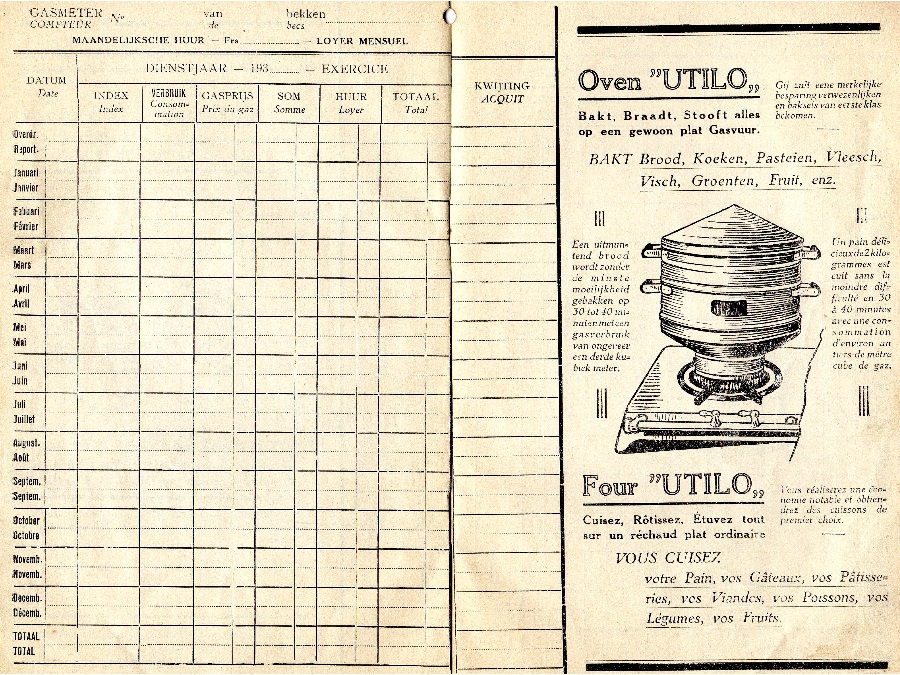 GASMETER No van bekken
COMPTEUR de becs
MAANDELIJKSCHE HUUR — Frs. — LOYER MENSUEL
DIENSTJAAR — 193 — EXERCICE
DATUM
Date
INDEX
Index
VERBRUIK
Consom-
mation
GASPRIJS
Prix du gaz
SOM
Somme
HUUR
Loyer
TOTAAL
Total
KWIJTING
ACQUIT
Overdr.
Report.
Januari
Janvier
Febuari
Février
Maart
Mars
April
Avril
Mei
Mai
Juni
Juin
Juli
Juillet
August.
Août
Septem.
Septem.
October
Octobre
Novemb.
Novemb.
Decemb.
Décemb.
TOTAAL
TOTAL
Oven "UTILO„
Bakt, Braadt, Stooft alles
op een gewoon plat Gasvuur.
Gij zult eene merkelijke
besparing verwezenlijken
en baksels van eerste klas
bekomen.
BAKT Brood, Koeken, Pasteien, Vleesch,
Visch, Groenten, Fruit, enz.
Een uitmun-
tend brood
wordt zonder
de minste
moeilijkheid
gebakken op
30 tot 40 mi-
nuten met een
gasverbruik
van ongeveer
een derde ku-
biek meter.
Un pain déli-
cieux de 2 kilo-
grammes est
cuit sans la
moindre dif-
ficulté en 30
à 40 minutes
avec une con-
sommation
d'environ un
tiers de mètre
cube de gaz.
Four "UTILO„
Cuisez, Rôtissez, Étuvez tout
sur un réchaud plat ordinaire
Vous réaliserez une éco-
nomie notable et obtien-
drez des cuissons de
premier choix.
VOUS CUISEZ
votre Pain, vos Gâteaux, vos Pâtisse-
ries, vos Viandes, vos Poissons, vos
Légumes, vos Fruits.